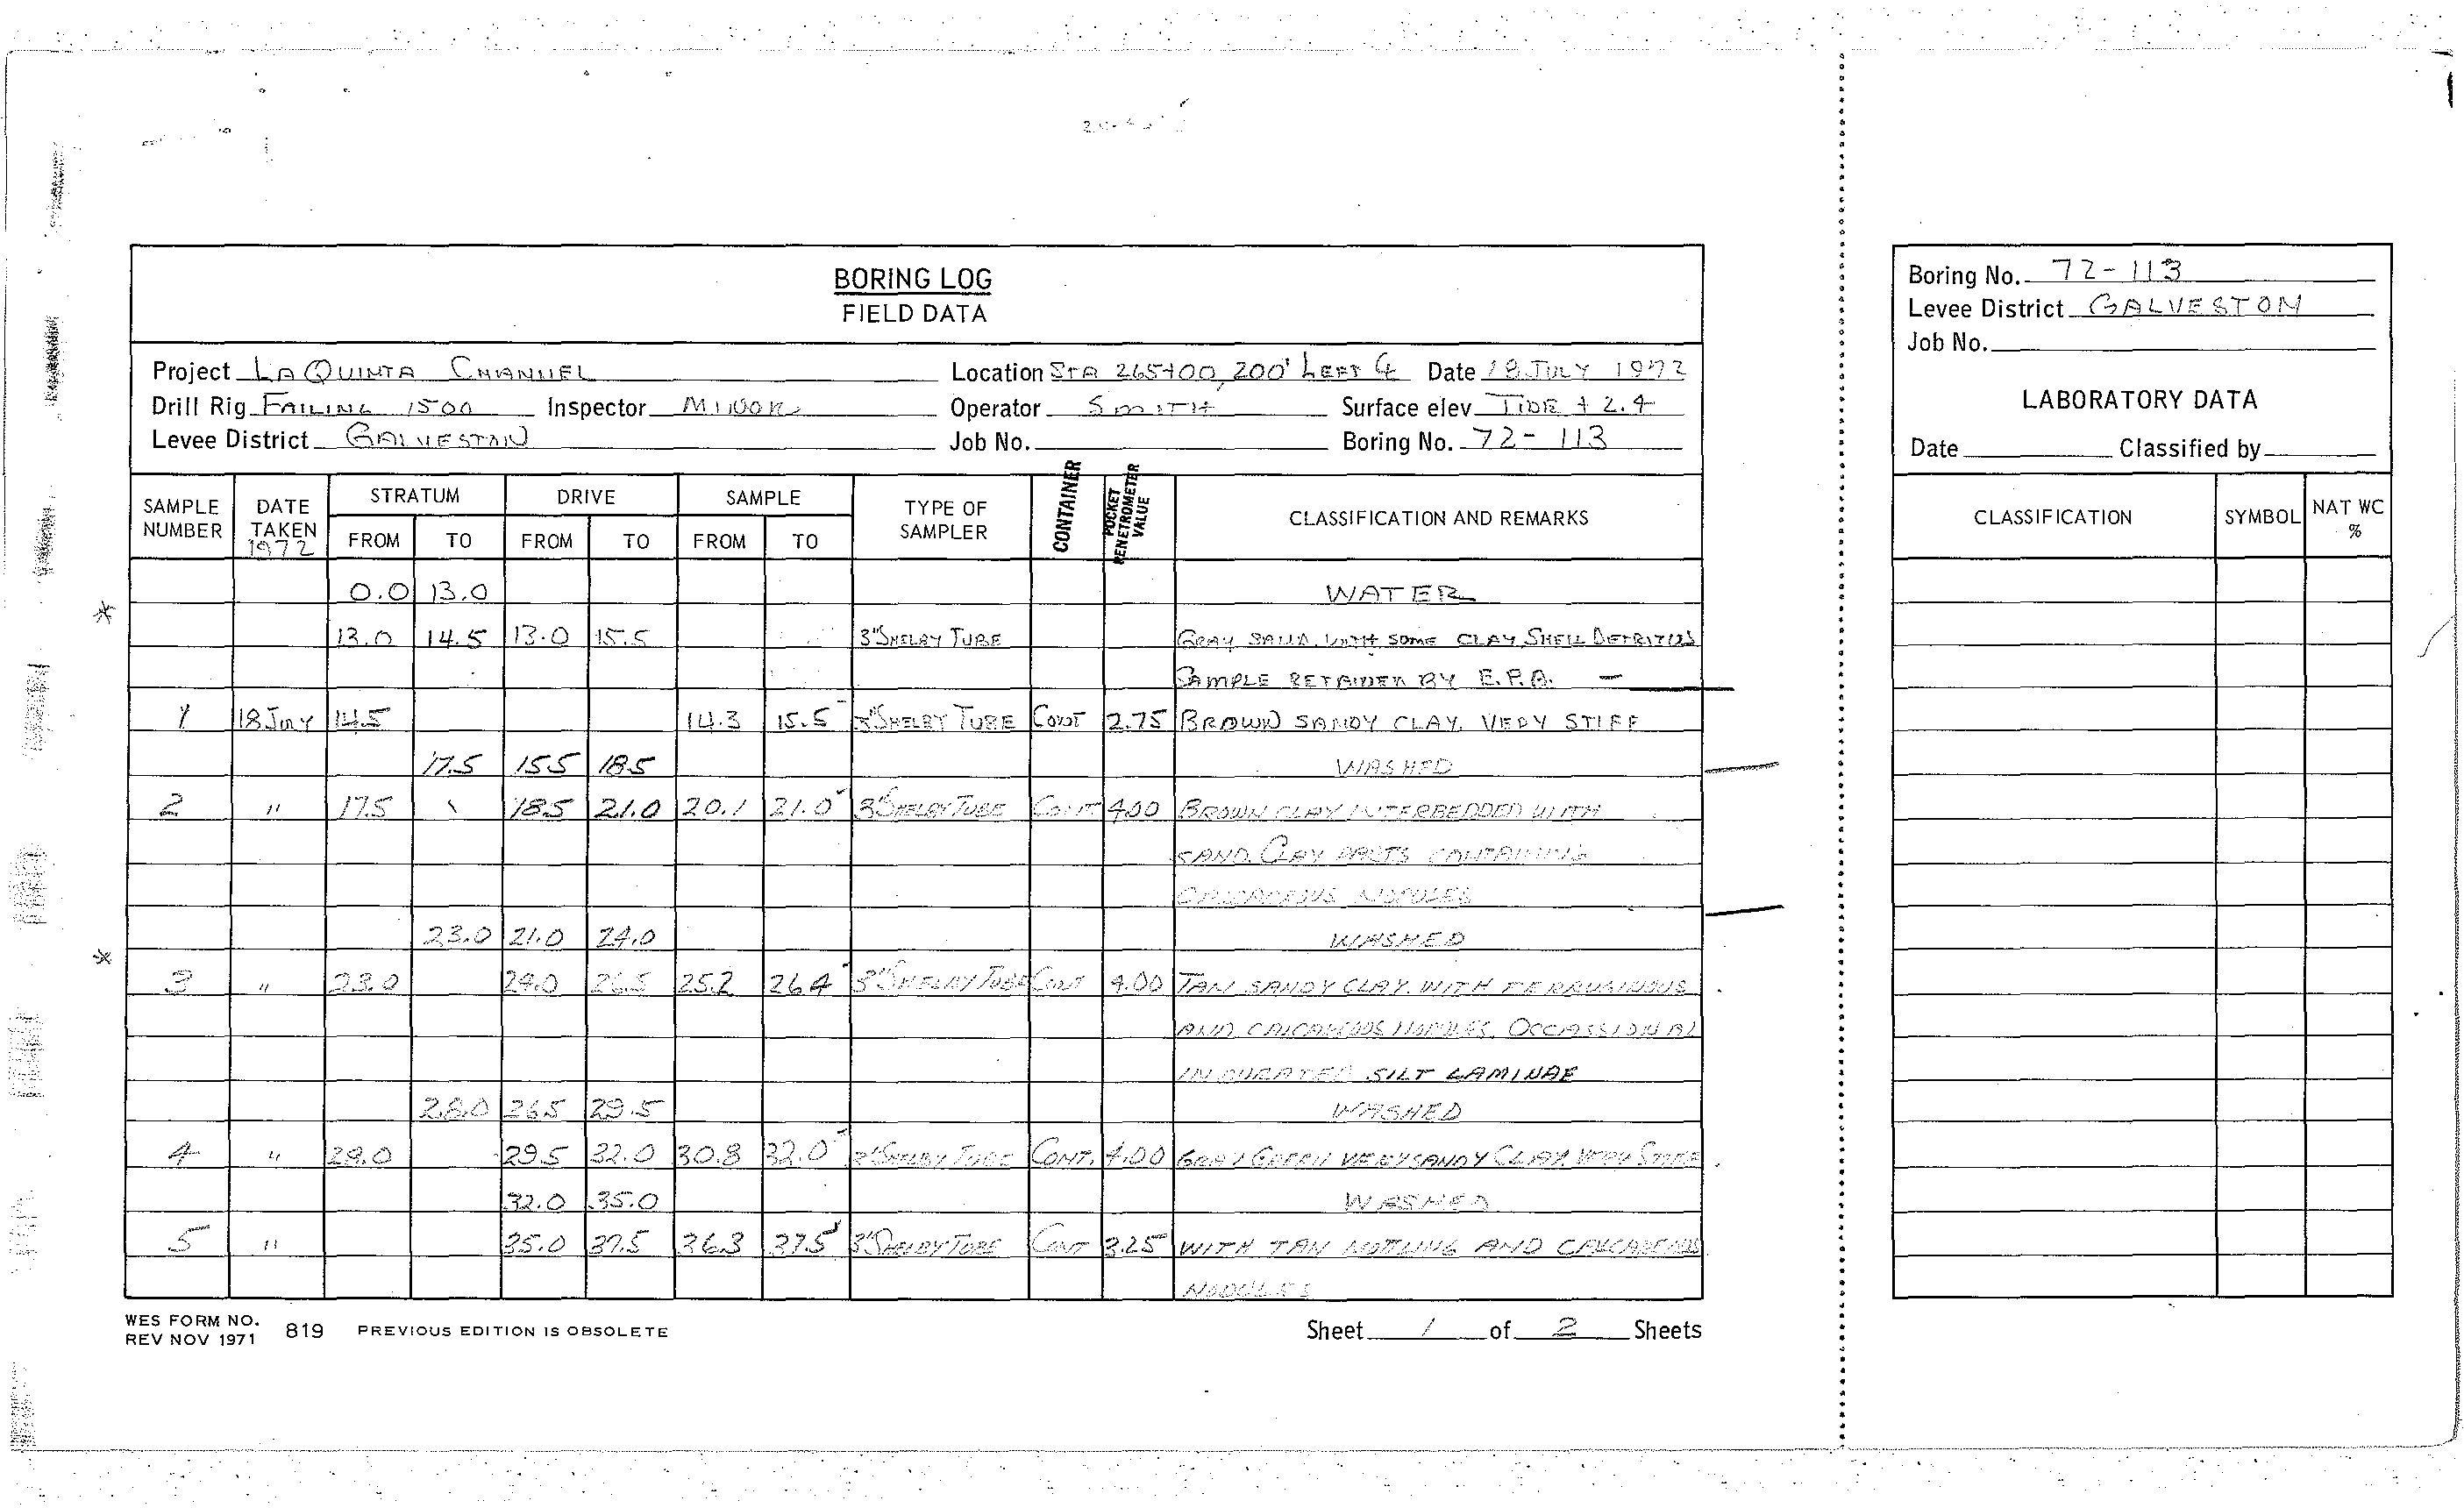 BORING LOG
FIELD DATA
Project LA QUINTA CHANNEL Location STA 265+00, 200' LEFT ℄ Date 18 JULY 1972
Drill Rig FAILING 1500 Inspector MINOR Operator SMITH Surface elev TIDE + 2.4
Levee District GALVESTON Job No. Boring No. 72-113
SAMPLE NUMBER DATE TAKEN 1972 STRATUM FROM TO DRIVE FROM TO SAMPLE FROM TO TYPE OF SAMPLER CONTAINER POCKET PENETROMETER VALUE CLASSIFICATION AND REMARKS
0.0 13.0 WATER
13.0 14.5 13.0 15.5 3" SHELBY TUBE GRAY SAND WITH SOME CLAY, SHELL DETRITUS
SAMPLE RETAINED BY E.P.A. —
1 18 JULY 14.5 14.3 15.5 3" SHELBY TUBE CONT 2.75 BROWN SANDY CLAY, VERY STIFF
17.5 15.5 18.5 WASHED
2 " 17.5 18.5 21.0 20.1 21.0 3" SHELBY TUBE CONT 4.00 BROWN CLAY INTERBEDDED WITH
SAND. CLAY PARTS CONTAINING
CALCAREOUS NODULES
23.0 21.0 24.0 WASHED
3 " 23.0 24.0 26.5 25.2 26.4 3" SHELBY TUBE CONT 4.00 TAN SANDY CLAY WITH FERRUGINOUS
AND CALCAREOUS NODULES. OCCASSIONAL
INDURATED SILT LAMINAE
28.0 26.5 29.5 WASHED
4 " 28.0 29.5 32.0 30.8 32.0 3" SHELBY TUBE CONT. 4.00 GRAY GREEN VERY SANDY CLAY, VERY STIFF
32.0 35.0 WASHED
5 " 35.0 37.5 36.3 37.5 3" SHELBY TUBE CONT 3.25 WITH TAN MOTLING AND CALCAREOUS
NODULES
WES FORM NO. 819 PREVIOUS EDITION IS OBSOLETE Sheet 1 of 2 Sheets
REV NOV 1971
Boring No. 72-113
Levee District GALVESTON
Job No.
LABORATORY DATA
Date Classified by
CLASSIFICATION SYMBOL NAT WC %